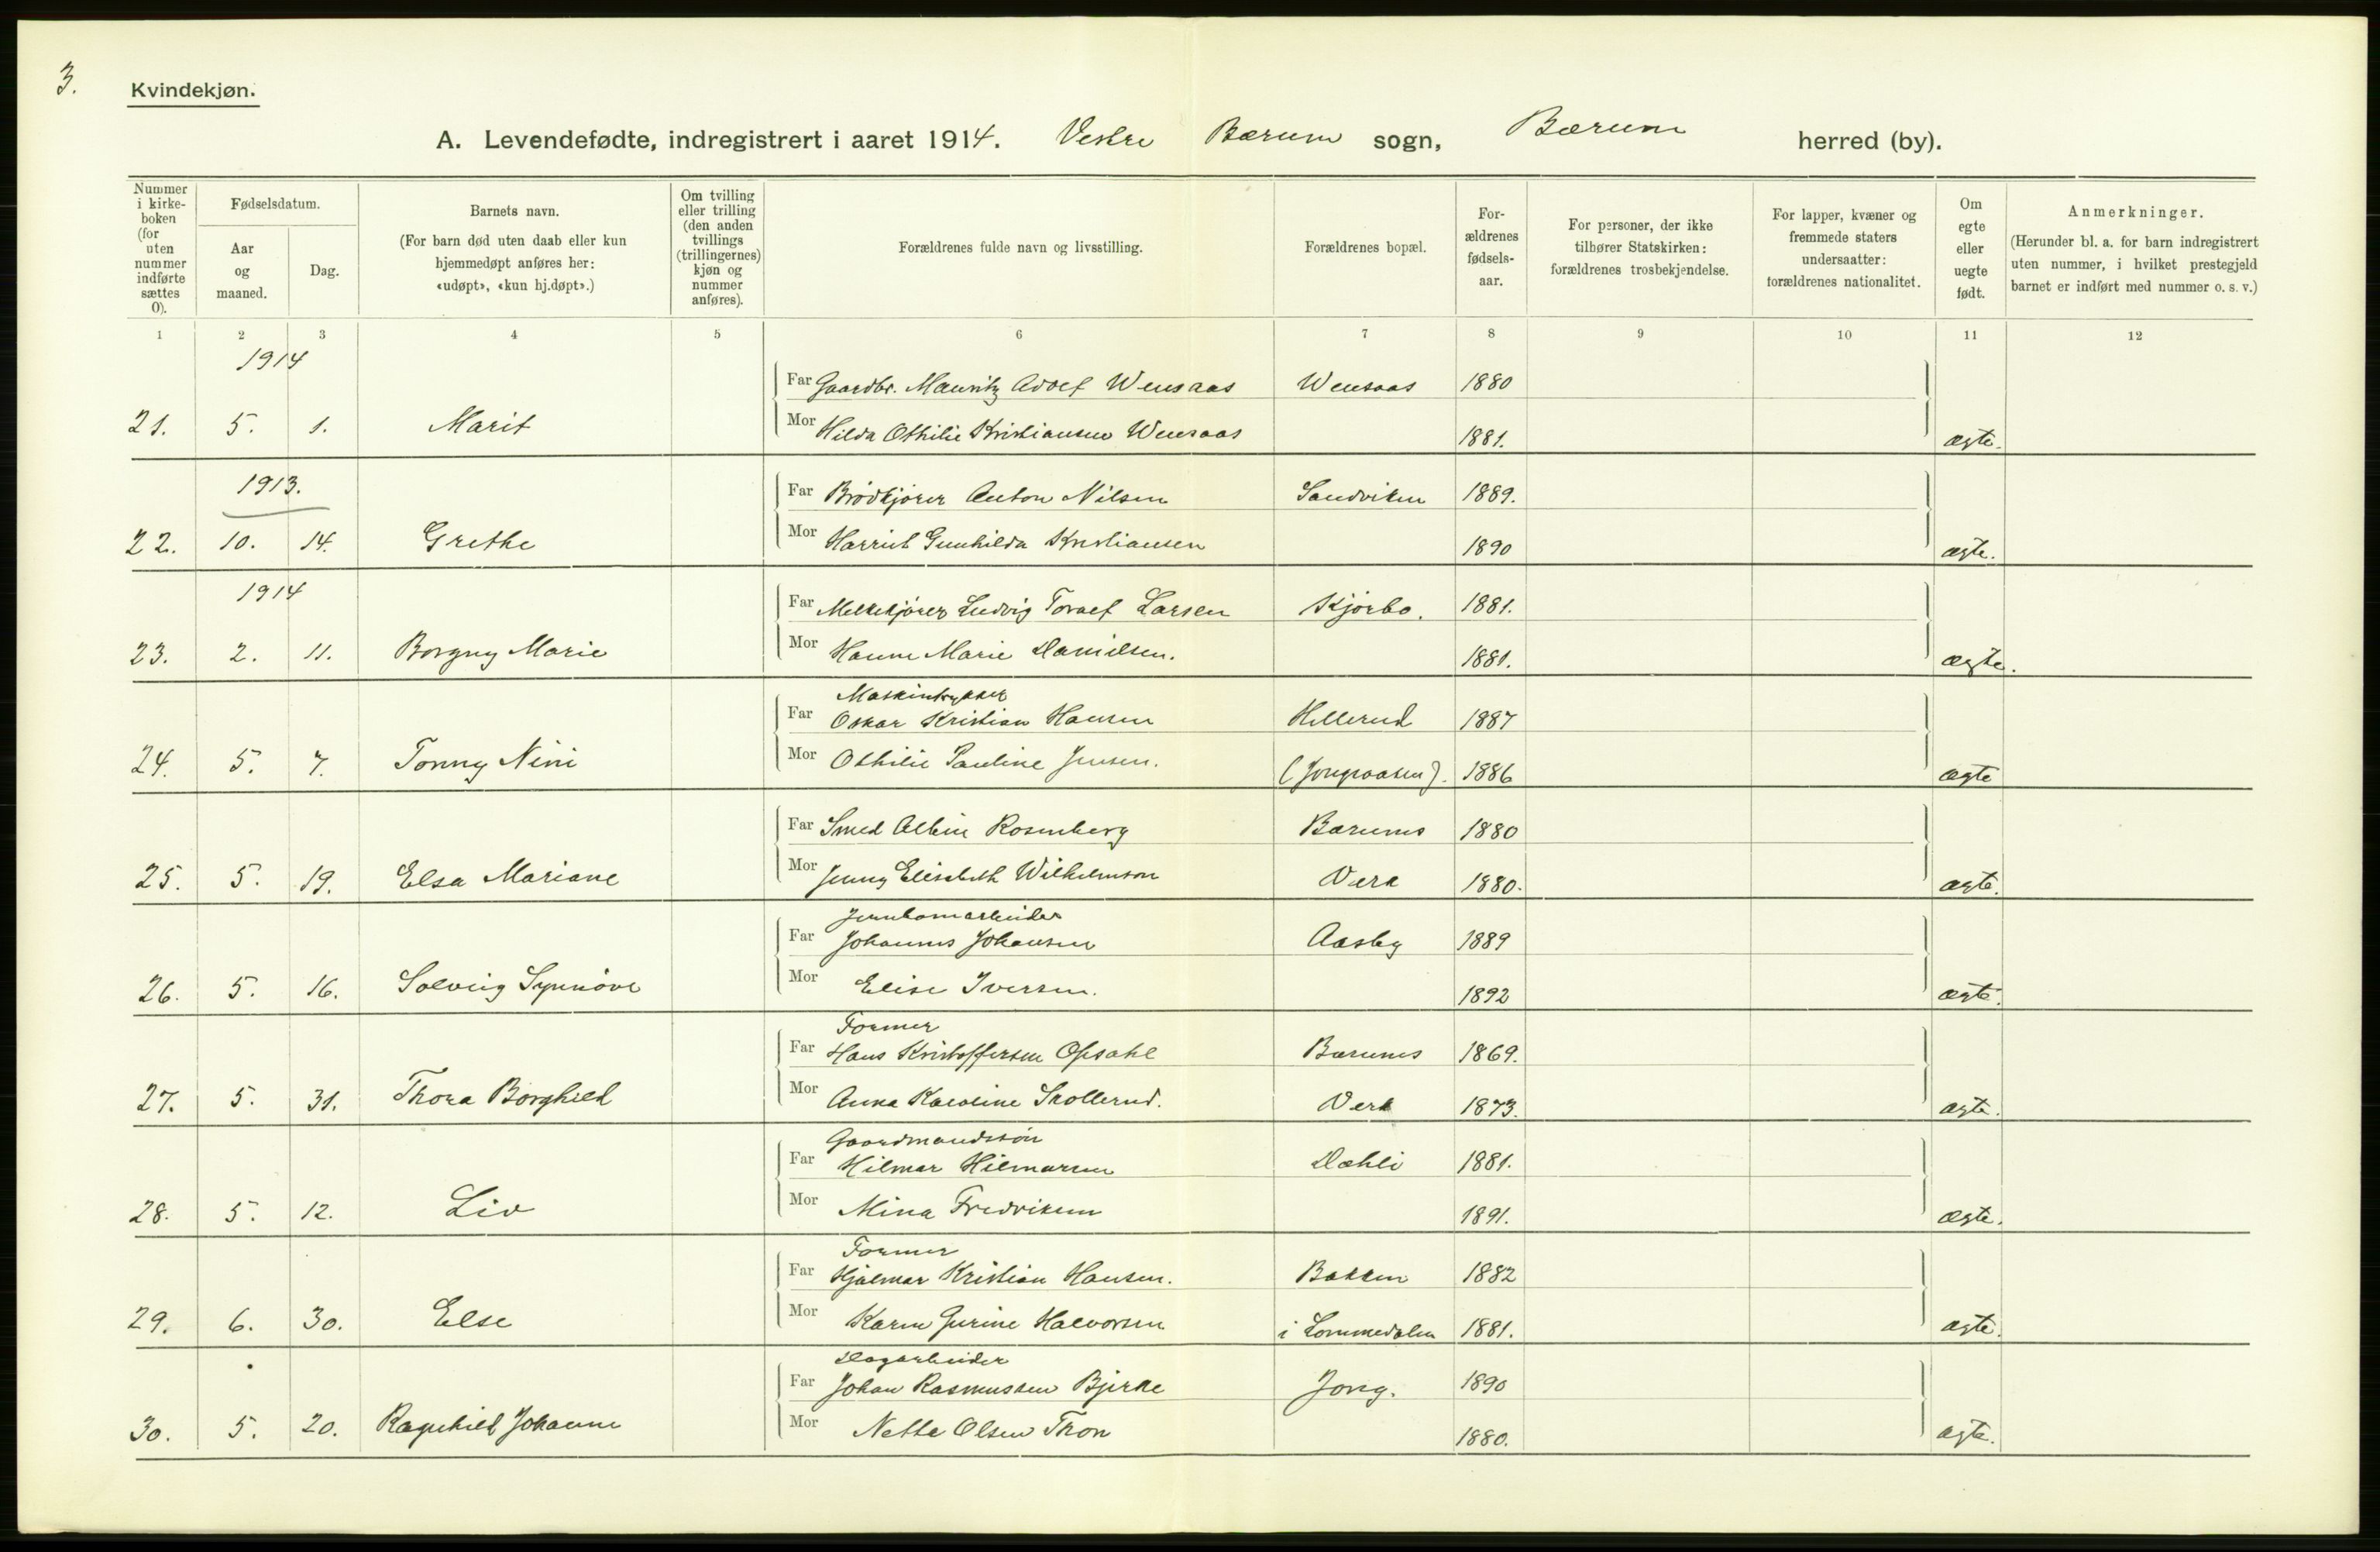 3.
Kvindekjøn.
A. Levendefødte, indregistrert i aaret 1914. Vestre Bærum sogn, Bærum herred (by).
Nummer i kirke-boken (for uten nummer indførte sættes 0).
Fødselsdatum.
Aar og maaned.
Dag.
Barnets navn.
(For barn død uten daab eller kun hjemmedøpt anføres her: «udøpt», «kun hj.døpt».)
Om tvilling eller trilling (den anden tvillings (trillingernes) kjøn og nummer anføres).
Forældrenes fulde navn og livsstilling.
Forældrenes bopæl.
For-ældrenes fødsels-aar.
For personer, der ikke tilhører Statskirken: forældrenes trosbekjendelse.
For lapper, kvæner og fremmede staters undersaatter: forældrenes nationalitet.
Om egte eller uegte født.
Anmerkninger.
(Herunder bl. a. for barn indregistrert uten nummer, i hvilket prestegjeld barnet er indført med nummer o. s. v.)
1 2 3 4 5 6 7 8 9 10 11 12
1914
Far Gaardbr. Mauritz Adolf Wensaas Wensaas 1880
21. 5. 1. Marit Mor Hilda Othilie Kristiansen Wensaas 1881. ægte.
1913.
Far Brødkjører Anton Nilsen Sandviken 1889.
22. 10. 14. Grethe Mor Harriet Gunhilda Kristiansen 1890 ægte.
1914
Far Melkekjører Ludvig Toralf Larsen Kjørbo. 1881.
23. 2. 11. Borgny Marie Mor Hanne Marie Danielsen. 1881. ægte.
Maskintrykker
Far Oskar Kristian Hansen Hellerud 1887
24. 5. 7. Tonny Nini Mor Othilie Pauline Jensen. (Jongsaasen). 1886 ægte
Far Smed Albin Rosenberg Bærums 1880
25. 5. 19. Elsa Mariane Mor Jenny Elisabeth Wilhelmson Værk 1880. ægte.
Jernbanearbeider
Far Johannes Johansen Aasby 1889
26. 5. 16. Solveig Synnøve Mor Elise Iversen. 1892 ægte.
Former
Far Hans Kristoffersen Opsahl Bærums 1869.
27. 5. 31. Thora Borghild Mor Anna Karoline Skollerud. Værk 1873. ægte.
Gaardmandssøn
Far Hilmar Hilmarsen Dæhli 1881.
28. 5. 12. Liv Mor Mina Fredriksen 1891. ægte.
Former
Far Hjalmar Kristian Hansen. Bakken 1882
29. 6. 30. Else Mor Karen Gurine Halvorsen i Lommedalen 1881. ægte.
Dagarbeider
Far Johan Rasmussen Bjerke Jong. 1890
30. 5. 20. Ragnhild Johanne Mor Netta Olsen Thon 1880. ægte.